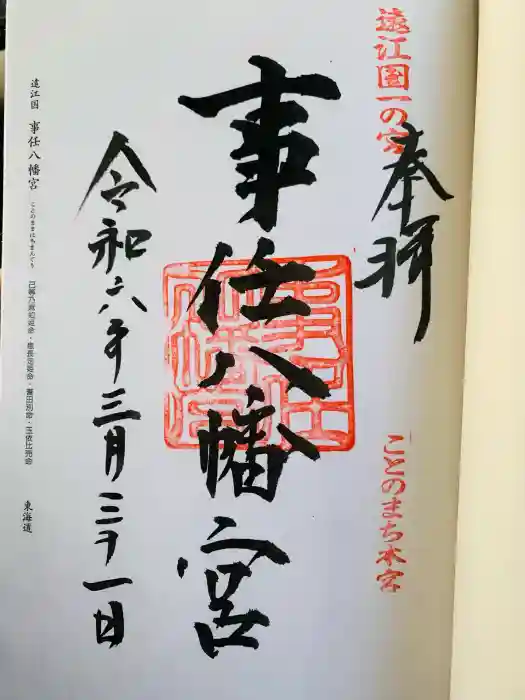 遠江國一の宮
奉拝
ことのまち本宮
事任八幡宮
令和六年三月三十一日
遠江国 事任八幡宮 ことのままはちまんぐう 己等乃麻知比売命・息長足姫命・誉田別命・玉依比売命 東海道